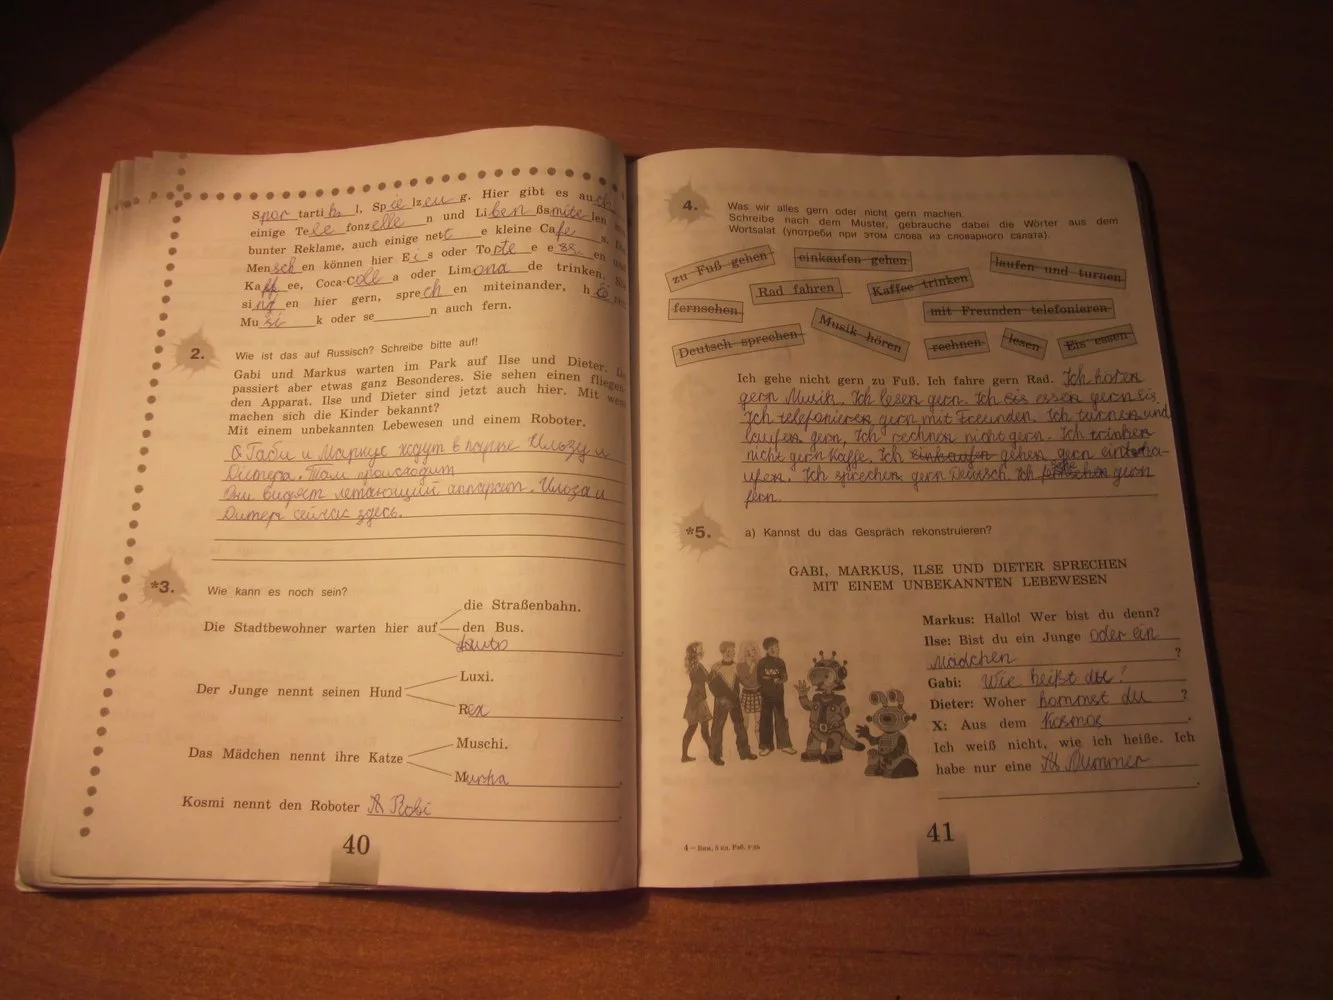 Sportartikel, Spielzeug. Hier gibt es auch
einige Telefonzellen und Li
bunter Reklame, auch einige nette kleine Cafes.
Menschen können hier Eis oder Torte essen und
Kaffee, Coca-Cola oder Limonade trinken.
singen hier gern, sprechen miteinander, hö
Musik oder se____n auch fern.
2.
Wie ist das auf Russisch? Schreibe bitte auf!
Gabi und Markus warten im Park auf Ilse und Dieter.
passiert aber etwas ganz Besonderes. Sie sehen einen fliegen-
den Apparat. Ilse und Dieter sind jetzt auch hier. Mit wem
machen sich die Kinder bekannt?
Mit einem unbekannten Lebewesen und einem Roboter.
Габи и Маркус ждут в парке Ильзу и
Дитера. Там происходит
Они видят летающий аппарат. Илза и
Дитер сейчас здесь.
*3.
Wie kann es noch sein?
die Straßenbahn.
Die Stadtbewohner warten hier auf den Bus.
Auto
Luxi.
Der Junge nennt seinen Hund
Rex
Muschi.
Das Mädchen nennt ihre Katze
Murka
Kosmi nennt den Roboter Robi
40
4.
Was wir alles gern oder nicht gern machen.
Schreibe nach dem Muster, gebrauche dabei die Wörter aus dem
Wortsalat (употреби при этом слова из словарного салата).
zu Fuß gehen einkaufen gehen laufen und turnen
Rad fahren Kaffee trinken
fernsehen mit Freunden telefonieren
Deutsch sprechen Musik hören rechnen lesen Eis essen
Ich gehe nicht gern zu Fuß. Ich fahre gern Rad. Ich hören
gern Musik. Ich lesen gern. Ich eis essen gern eis.
Ich telefonieren gern mit Freunden. Ich turnen und
laufen gern. Ich rechnen nicht gern. Ich trinken
nicht gern Kaffe. Ich einkaufen gehen gern einka-
ufen. Ich sprechen gern Deutsch. Ich sehe gern
fern.
*5.
a) Kannst du das Gespräch rekonstruieren?
GABI, MARKUS, ILSE UND DIETER SPRECHEN
MIT EINEM UNBEKANNTEN LEBEWESEN
Markus: Hallo! Wer bist du denn?
Ilse: Bist du ein Junge oder ein
Mädchen?
Gabi: Wie heißt du?
Dieter: Woher kommst du?
X: Aus dem Kosmos.
Ich weiß nicht, wie ich heiße. Ich
habe nur eine Nummer
4—Бим, 5 кл. Раб. т-дь
41